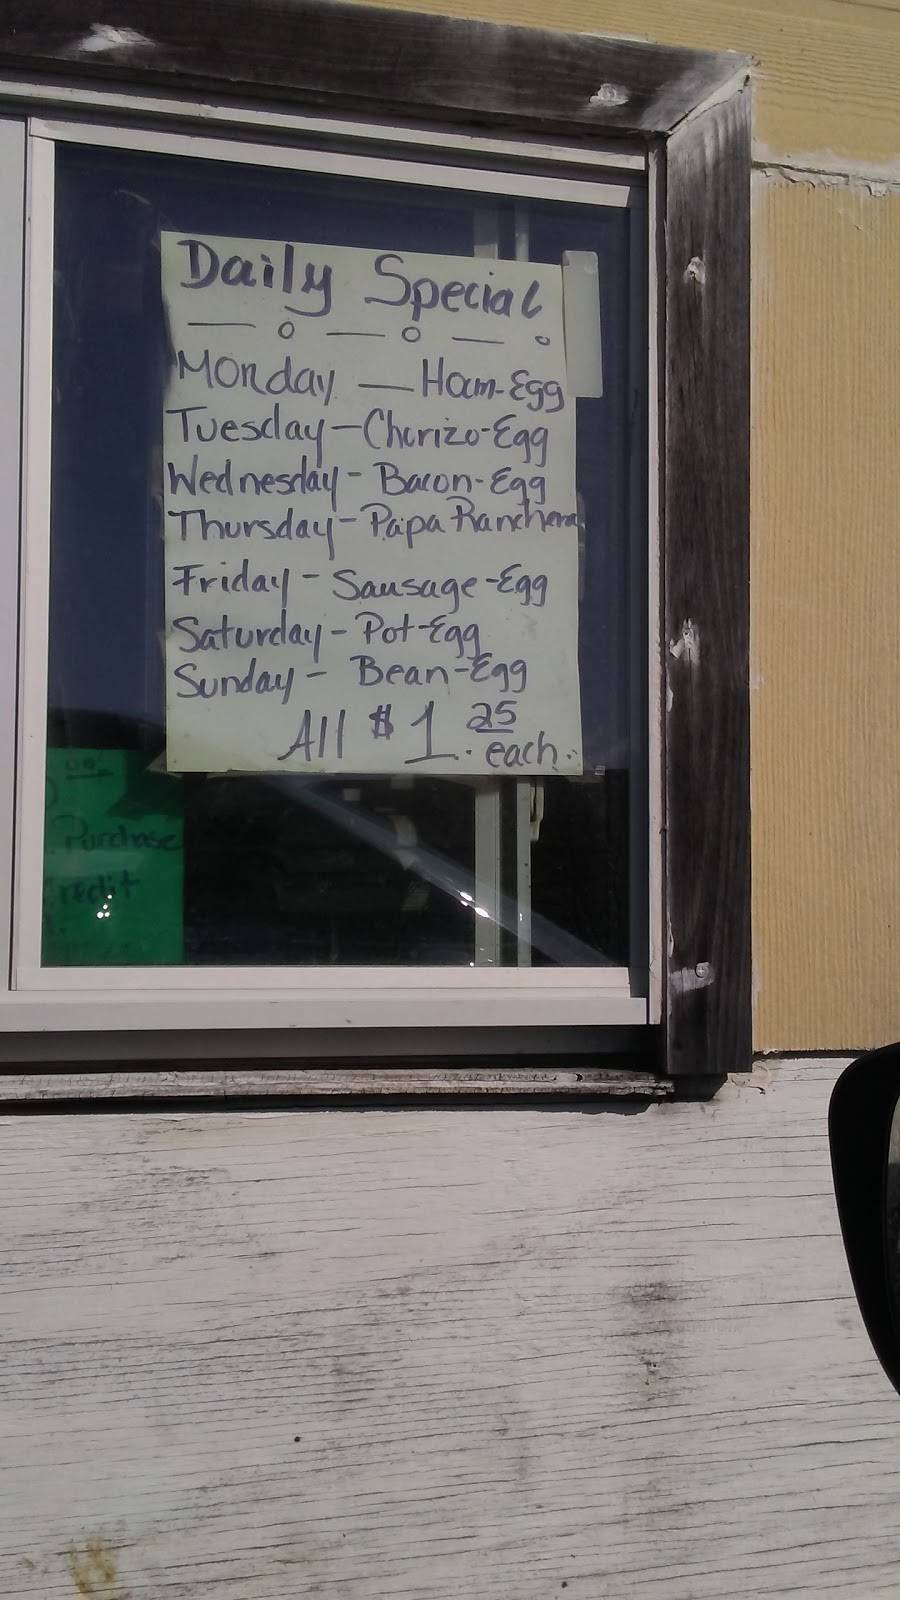 Daily Special
Monday — Ham-Egg
Tuesday - Chorizo-Egg
Wednesday - Bacon-Egg
Thursday - Papa Ranchera
Friday - Sausage-Egg
Saturday - Pot-Egg
Sunday - Bean-Egg
All $1.25 each.
Purchase